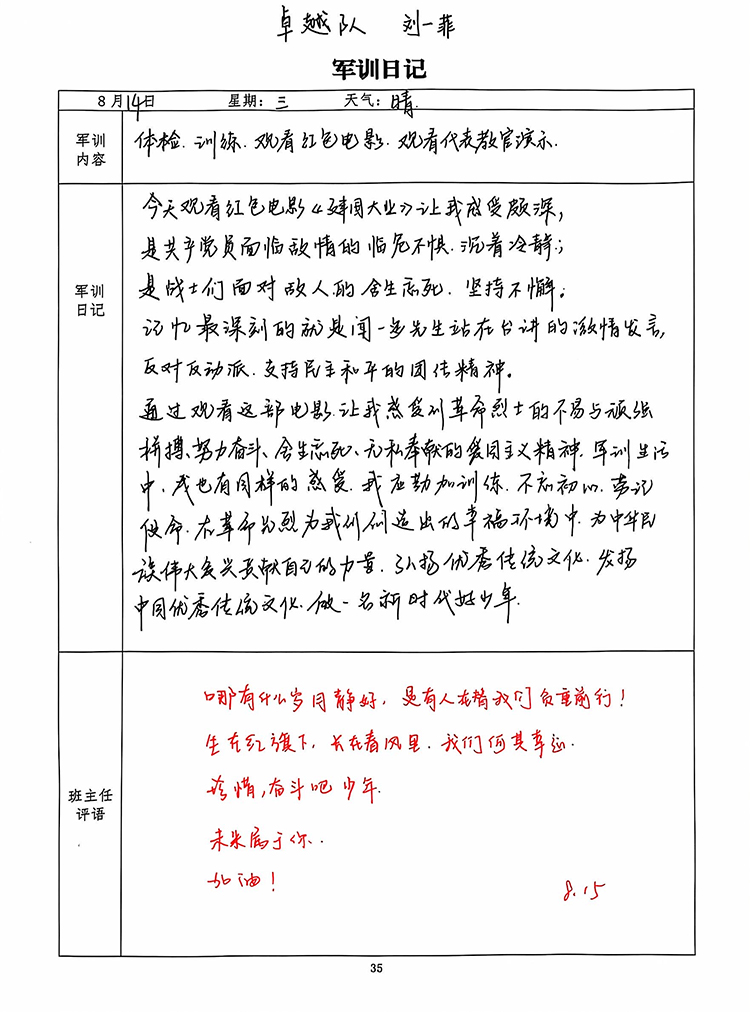 卓越队 刘一菲
军训日记
8月14日 星期:三 天气:晴.
军训
内容
体检.训练.观看红色电影.观看代表教官演示.
军训
日记
今天观看红色电影《建国大业》让我感受颇深,
是共产党员面临敌情的临危不惧.沉着冷静;
是战士们面对敌人的舍生忘死.坚持不懈。
记忆最深刻的就是闻一多先生站在台讲的激情发言,
反对反动派.支持民主和平的团结精神。
通过观看这部电影.让我感受到革命烈士的不易与顽强
拼搏、努力奋斗、舍生忘死、无私奉献的爱国主义精神.军训生活
中,我也有同样的感受.我应勤加训练.不忘初心.牢记
使命.在革命先烈为我们创造出的幸福环境中.为中华民
族伟大复兴贡献自己的力量.弘扬优秀传统文化.发扬
中国优秀传统文化.做一名新时代好少年.
班主任
评语
哪有什么岁月静好,是有人在替我们负重前行!
生在红旗下,长在春风里.我们何其幸运.
珍惜,奋斗吧少年.
未来属于你.
加油!
8.15
35